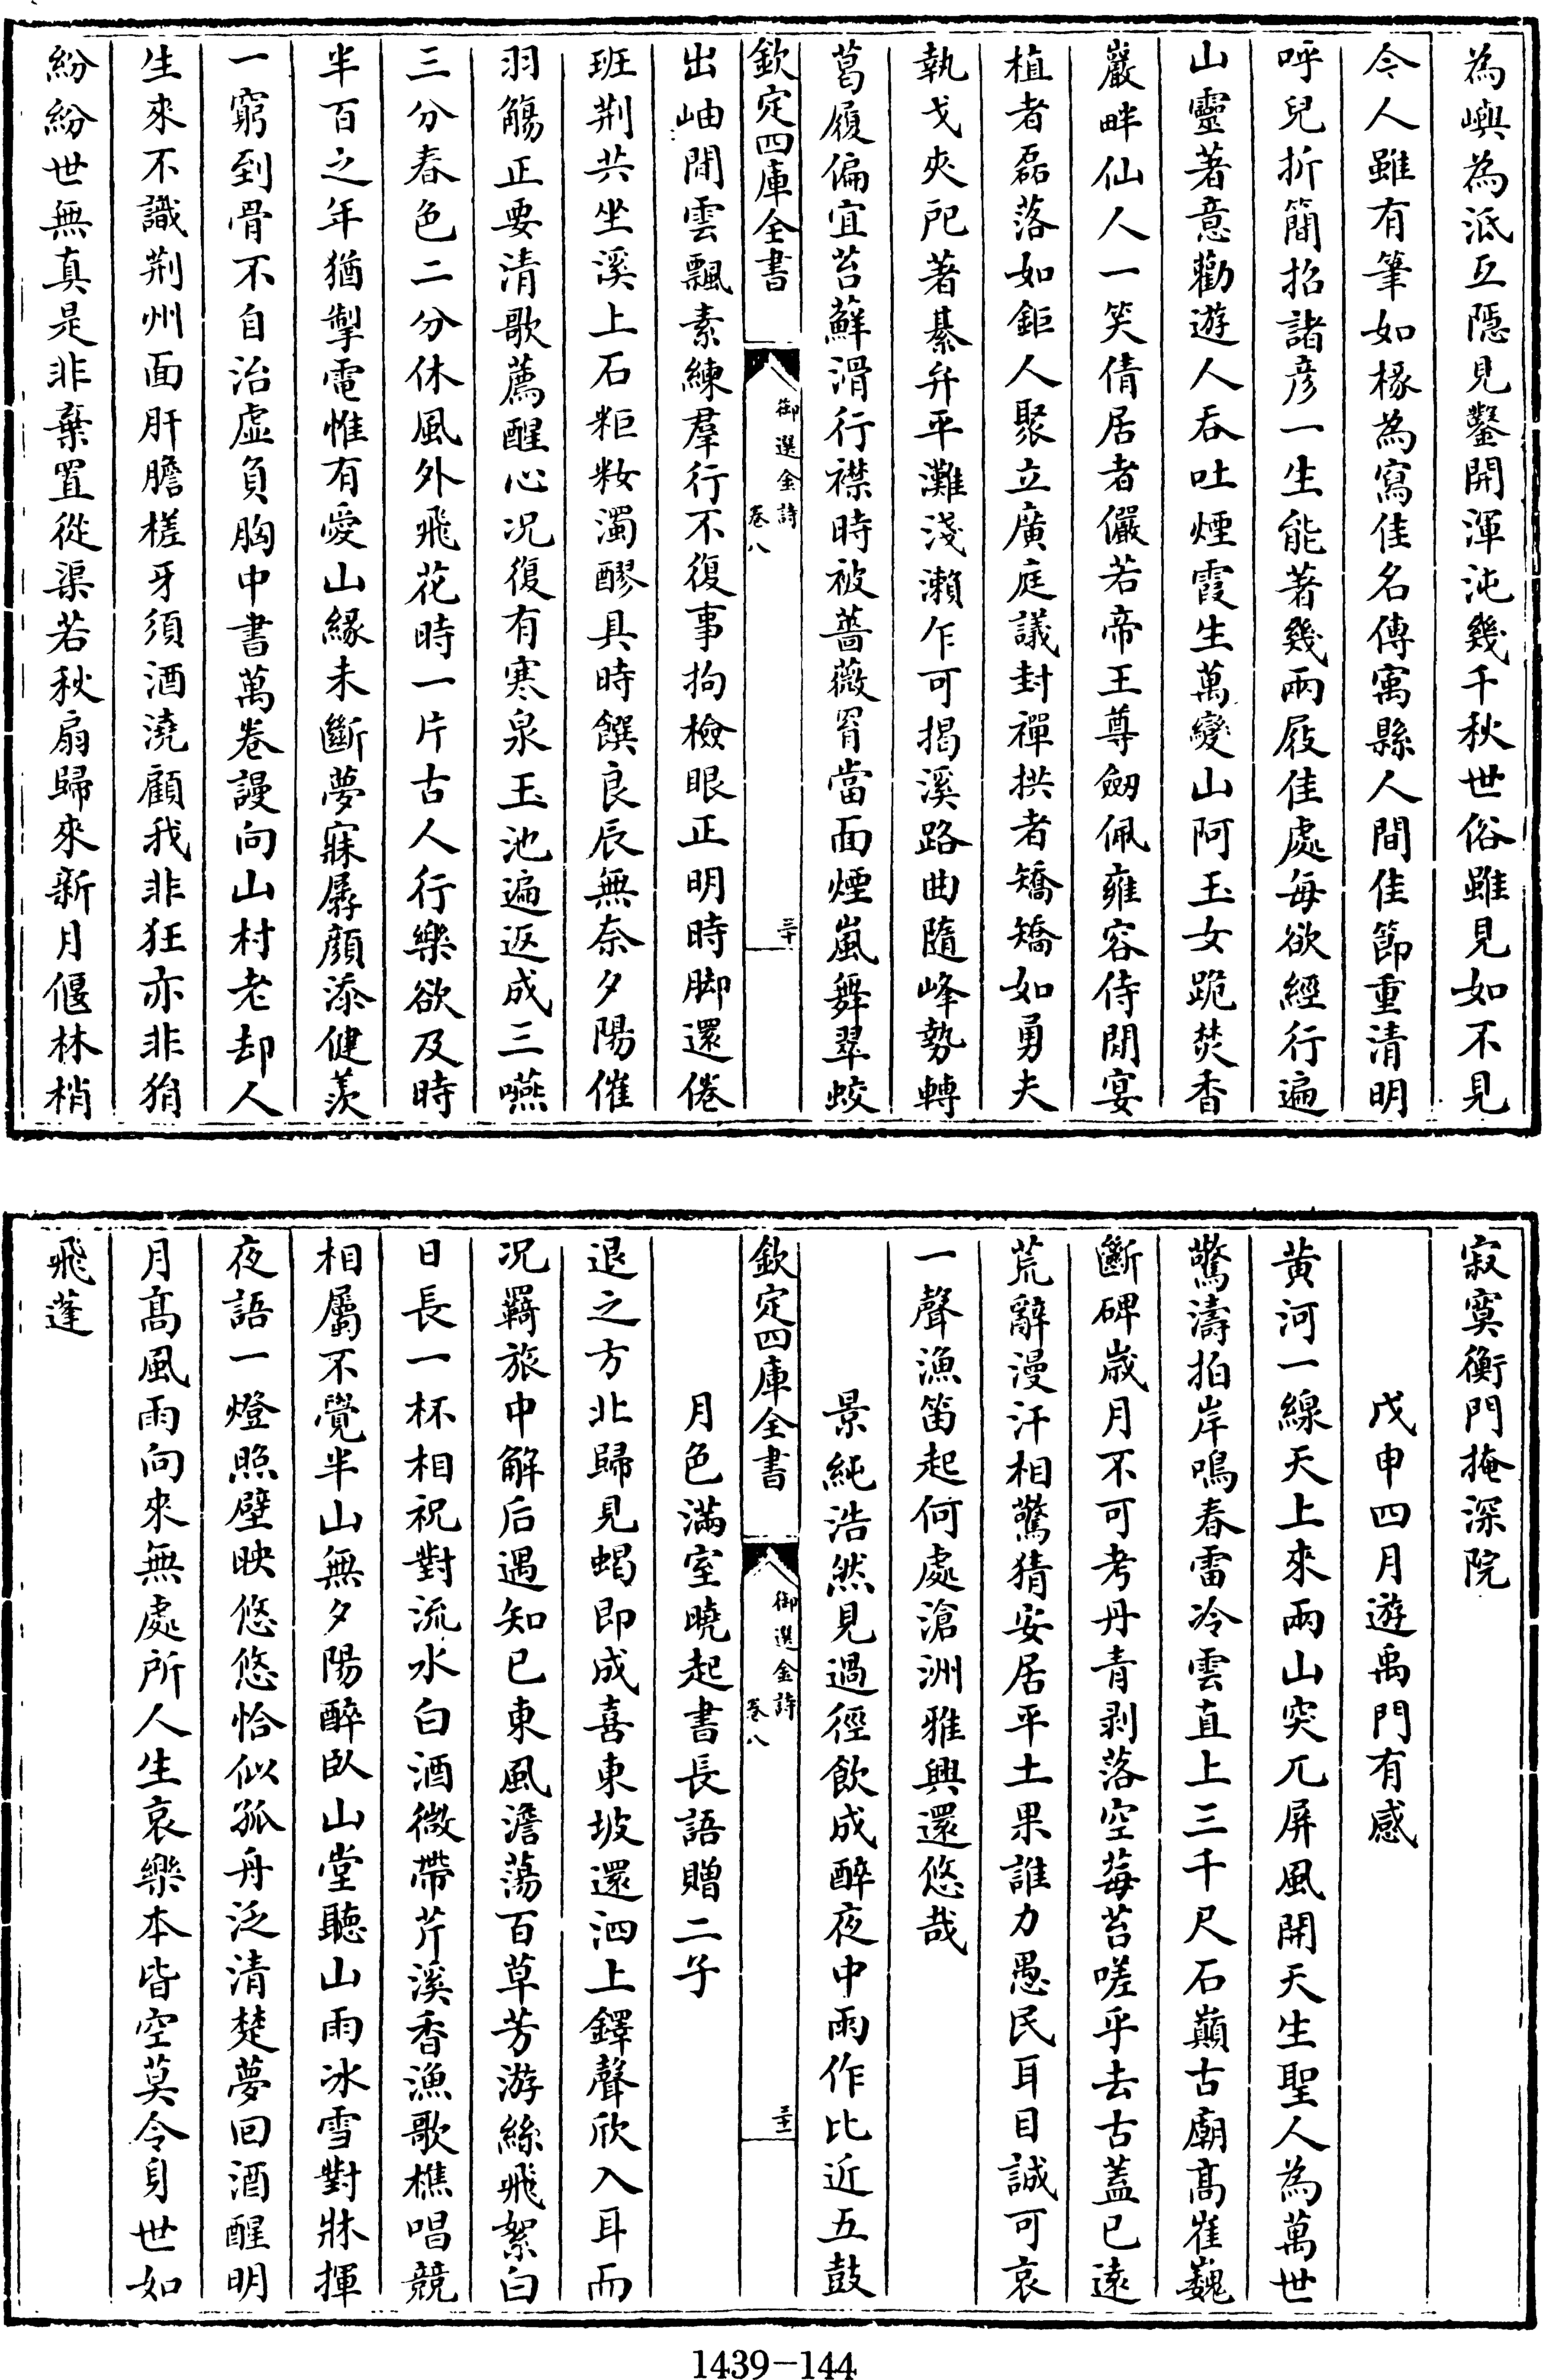 為嶼為泜互隱見鑿開渾沌幾千秋世俗雖見如不見
今人雖有筆如椽為寫佳名傳寓縣人間佳節重清明
呼兒折簡招諸彦一生能著幾兩屐佳處每欲經行遍
山靈著意勸遊人吞吐煙霞生萬變山阿玉女跪焚香
巖畔仙人一笑倩居者儼若帝王尊劒佩雍容侍閒宴
植者磊落如鉅人聚立廣庭議封禪拱者矯矯如勇夫
執戈夾戺著綦弁平灘淺瀨乍可揭溪路曲隨峰勢轉
葛履偏宜苔蘚滑行襟時被薔薇罥當面煙嵐舞翠蛟
欽定四庫全書
御選金詩
卷八
三十
出岫閒雲飄素練羣行不復事拘檢眼正明時脚還倦
班荆共坐溪上石粔籹濁醪具時饌良辰無奈夕陽催
羽觴正要清歌薦醒心况復有寒泉玉池遍返成三嚥
三分春色二分休風外飛花時一片古人行樂欲及時
半百之年猶掣電惟有愛山緣未斷夢寐孱顔添健羨
一窮到骨不自治虚負胸中書萬卷謾向山村老却人
生來不識荆州面肝膽槎牙須酒澆顧我非狂亦非狷
紛紛世無真是非棄置從渠若秋扇歸來新月偃林梢
寂寞衡門掩深院
戊申四月遊禹門有感
黄河一線天上來兩山突兀屏風開天生聖人為萬世
驚濤拍岸鳴春雷冷雲直上三千尺石巔古廟髙崔巍
斷碑歳月不可考丹青剥落空莓苔嗟乎去古蓋已逺
荒辭漫汗相驚猜安居平土果誰力愚民耳目誠可哀
一聲漁笛起何處滄洲雅興還悠哉
景純浩然見過徑飲成醉夜中雨作比近五鼓
欽定四庫全書
御選金詩
卷八
三十一
月色滿室曉起書長語贈二子
退之方北歸見蝎即成喜東坡還泗上鐸聲欣入耳而
况羇旅中解后遇知已東風澹蕩百草芳游絲飛絮白
日長一杯相祝對流水白酒微帶芹溪香漁歌樵唱競
相屬不覺半山無夕陽醉臥山堂聽山雨冰雪對牀揮
夜語一燈照壁映悠悠恰似孤舟泛清楚夢回酒醒明
月髙風雨向來無處所人生哀樂本皆空莫令身世如
飛蓬
1439-144